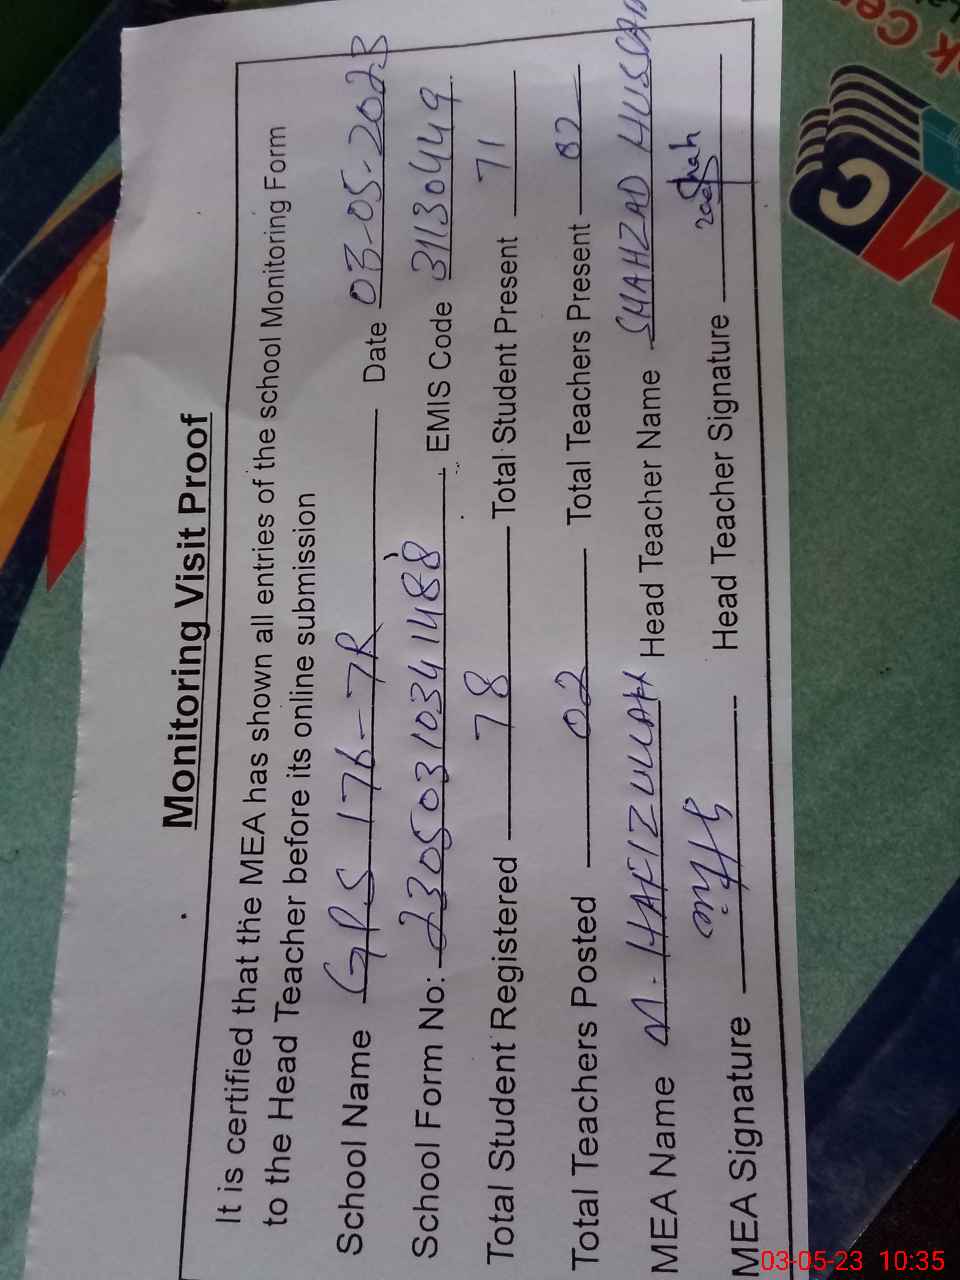 Monitoring Visit Proof
It is certified that the MEA has shown all entries of the school Monitoring Form
to the Head Teacher before its online submission
School Name GPS 176-7R Date 03-05-2023
School Form No: 23050310341488 EMIS Code 31130449
Total Student Registered 78 Total Student Present 71
Total Teachers Posted 02 Total Teachers Present 02
MEA Name M. HAFIZULLAH Head Teacher Name SHAHZAD HUSSAIN
MEA Signature Head Teacher Signature
03-05-23 10:35